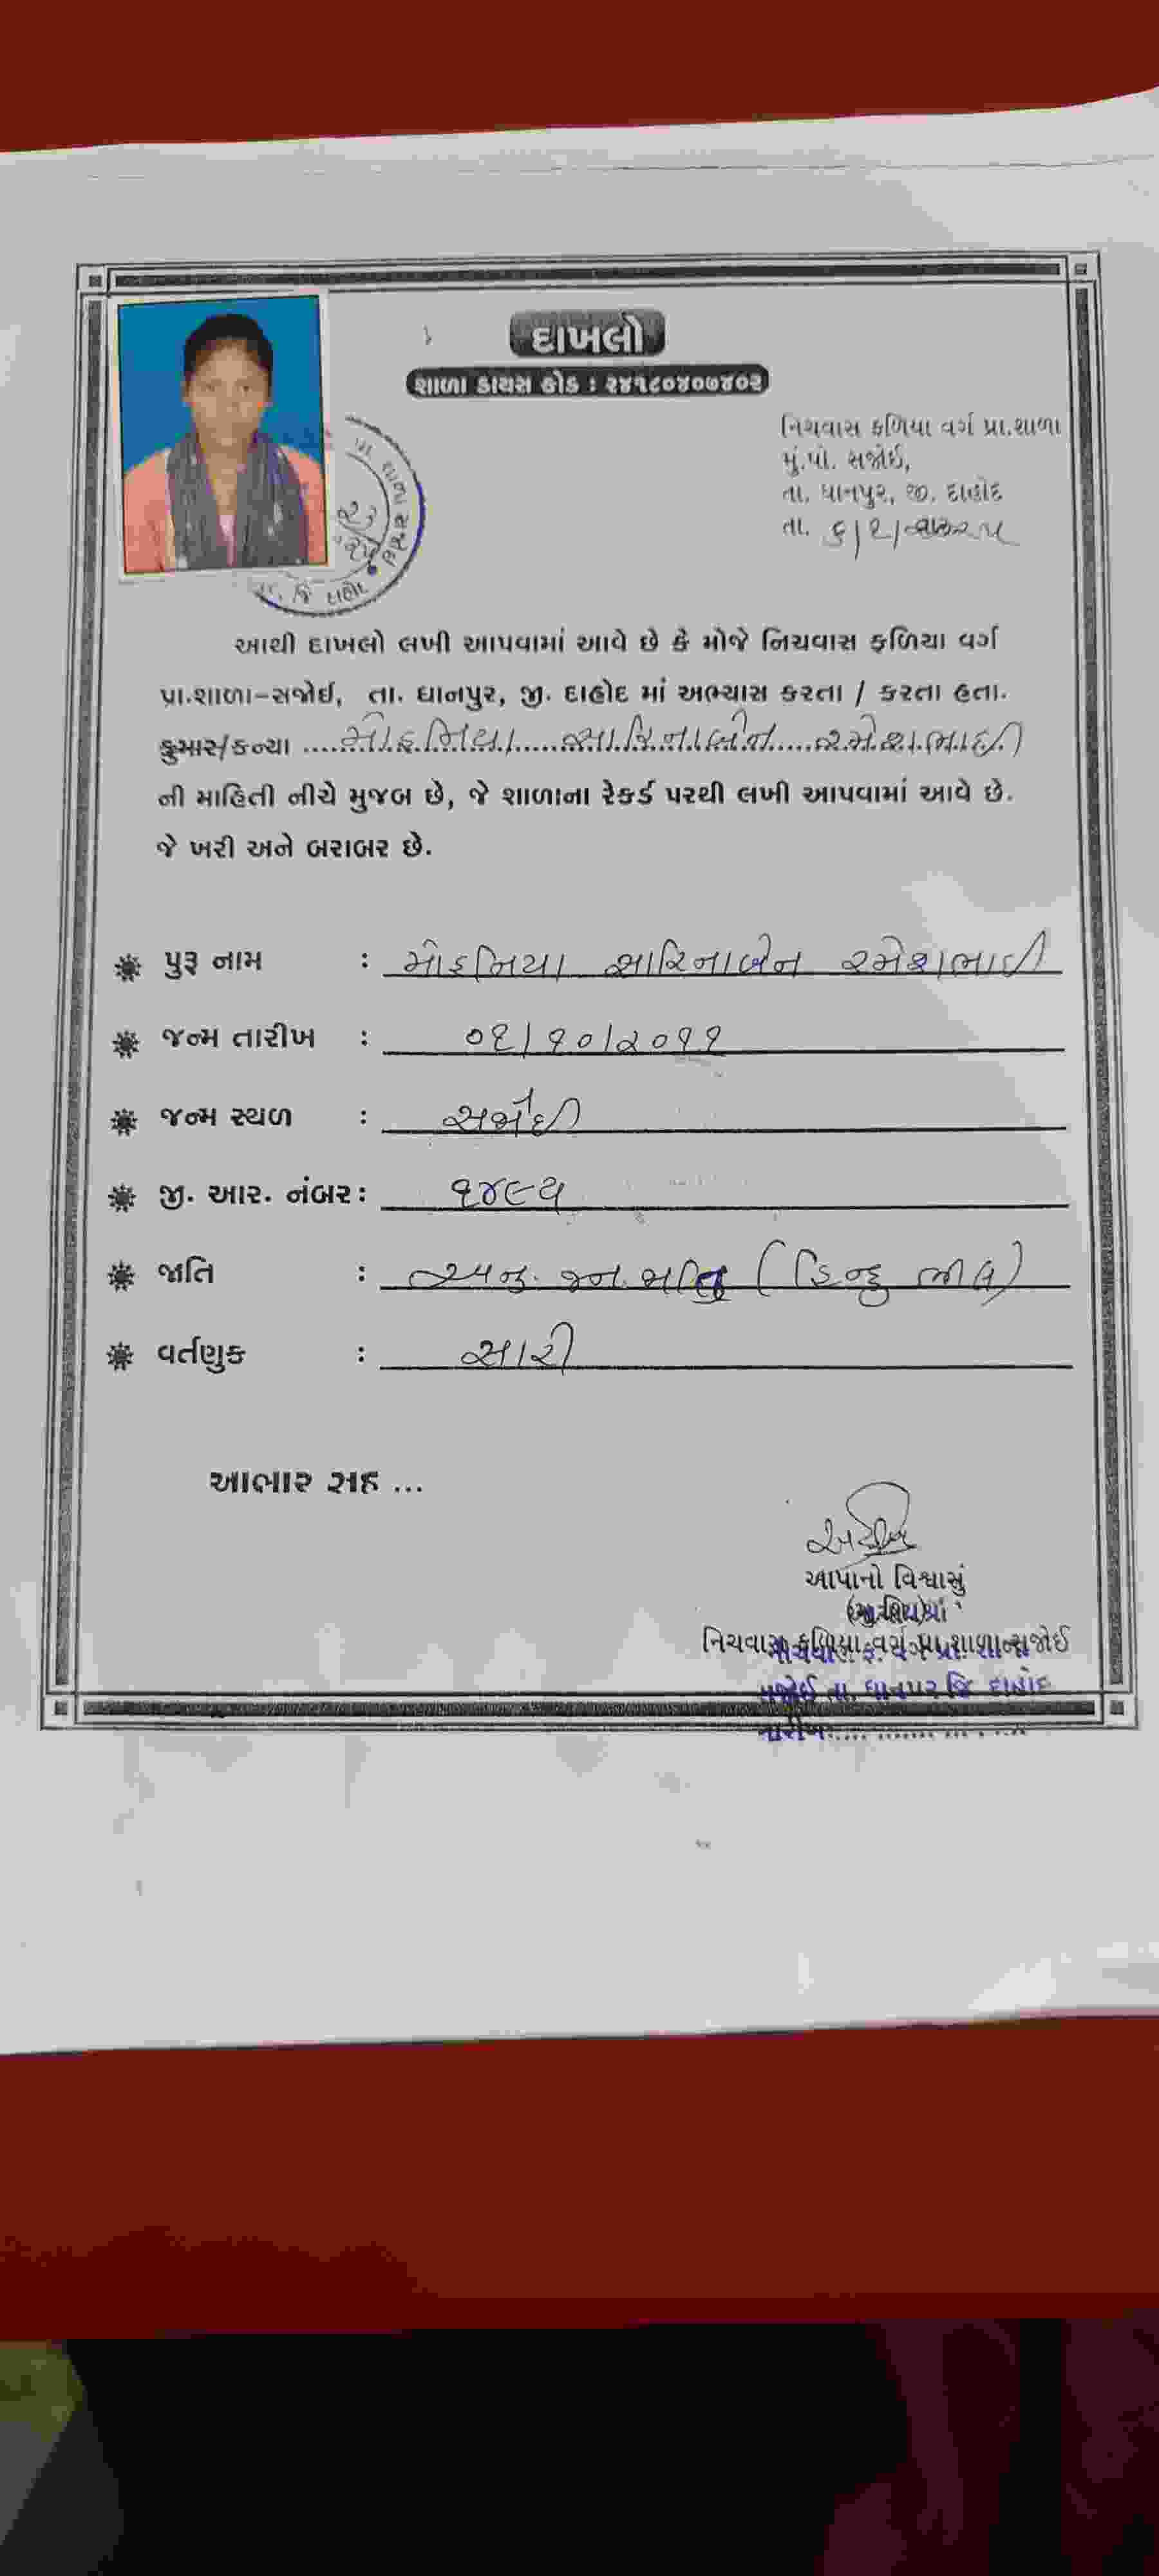 દાખલો
શાળા ડાયસ કોડ : ૨૪૧૮૦૪૦૭૪૦૨
નિચવાસ ફળિયા વર્ગ પ્રા.શાળા
મું.પો. સજોઈ,
તા. ધાનપુર, જી. દાહોદ
તા.
આથી દાખલો લખી આપવામાં આવે છે કે મોજે નિચવાસ ફળિયા વર્ગ
પ્રા.શાળા-સજોઈ, તા. ધાનપુર, જી. દાહોદ માં અભ્યાસ કરતા / કરતા હતા.
કુમાર/કન્યા ..... મોહનિયા ..... રમેશભાઈ
ની માહિતી નીચે મુજબ છે, જે શાળાના રેકર્ડ પરથી લખી આપવામાં આવે છે.
જે ખરી અને બરાબર છે.
પુરૂ નામ : મોહનિયા સારિનાબેન રમેશભાઈ
જન્મ તારીખ : ૦૧/૧૦/૨૦૧૧
જન્મ સ્થળ : સજોઈ
જી. આર. નંબર :
જાતિ : અનુ. જન. જાતિ (હિન્દુ ભીલ)
વર્તણુક : સારી
આભાર સહ ...
આપાનો વિશ્વાસું
નિચવાસ ફળિયા વર્ગ પ્રા.શાળા-સજોઈ
સજોઈ તા. ધાનપુર જિ દાહોદ
તારીખ